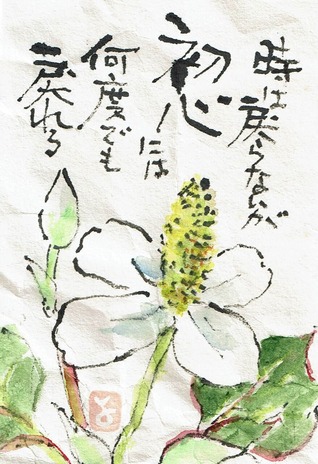 時は戻らないが
初心には
何度でも
戻れる